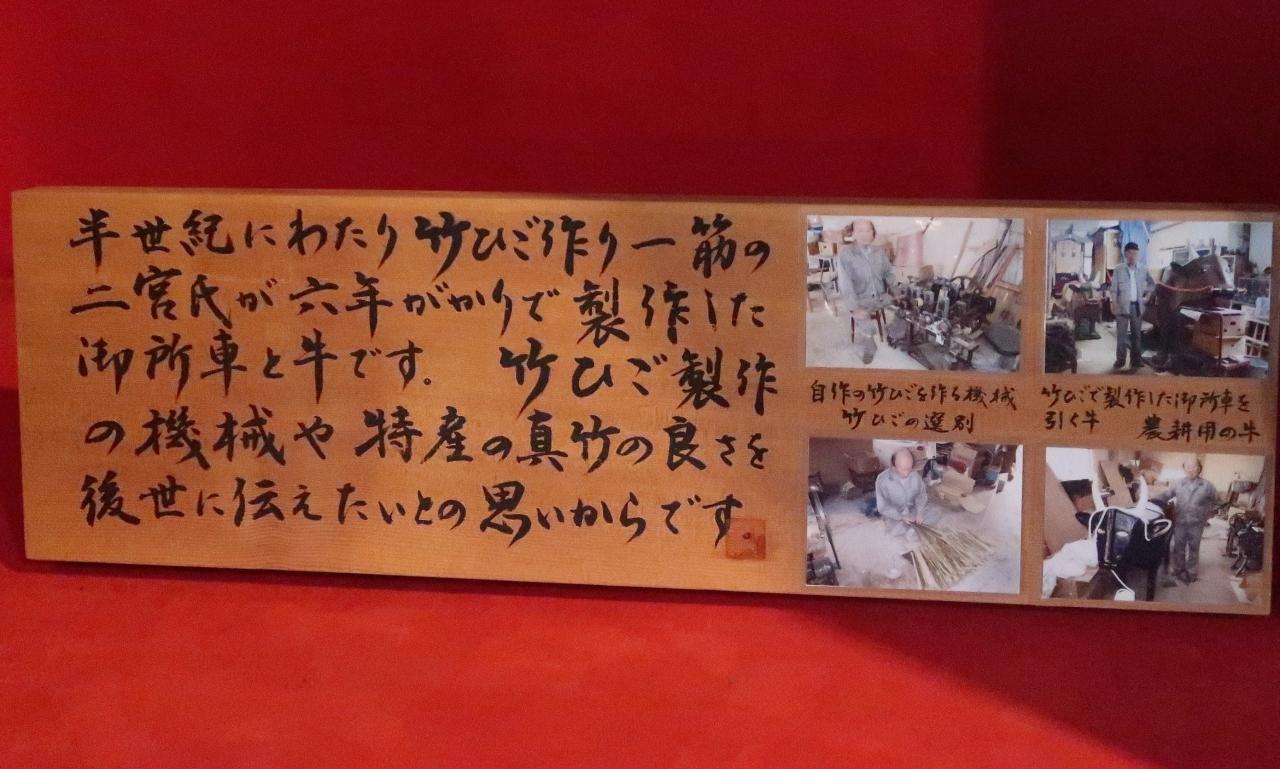 半世紀にわたり竹ひご作り一筋の
二宮氏が六年がかりで製作した
御所車と牛です。 竹ひご製作
の機械や特産の真竹の良さを
後世に伝えたいとの思いからです
自作の竹ひごを作る機械
竹ひごの選別
竹ひごで製作した御所車を
引く牛 農耕用の牛